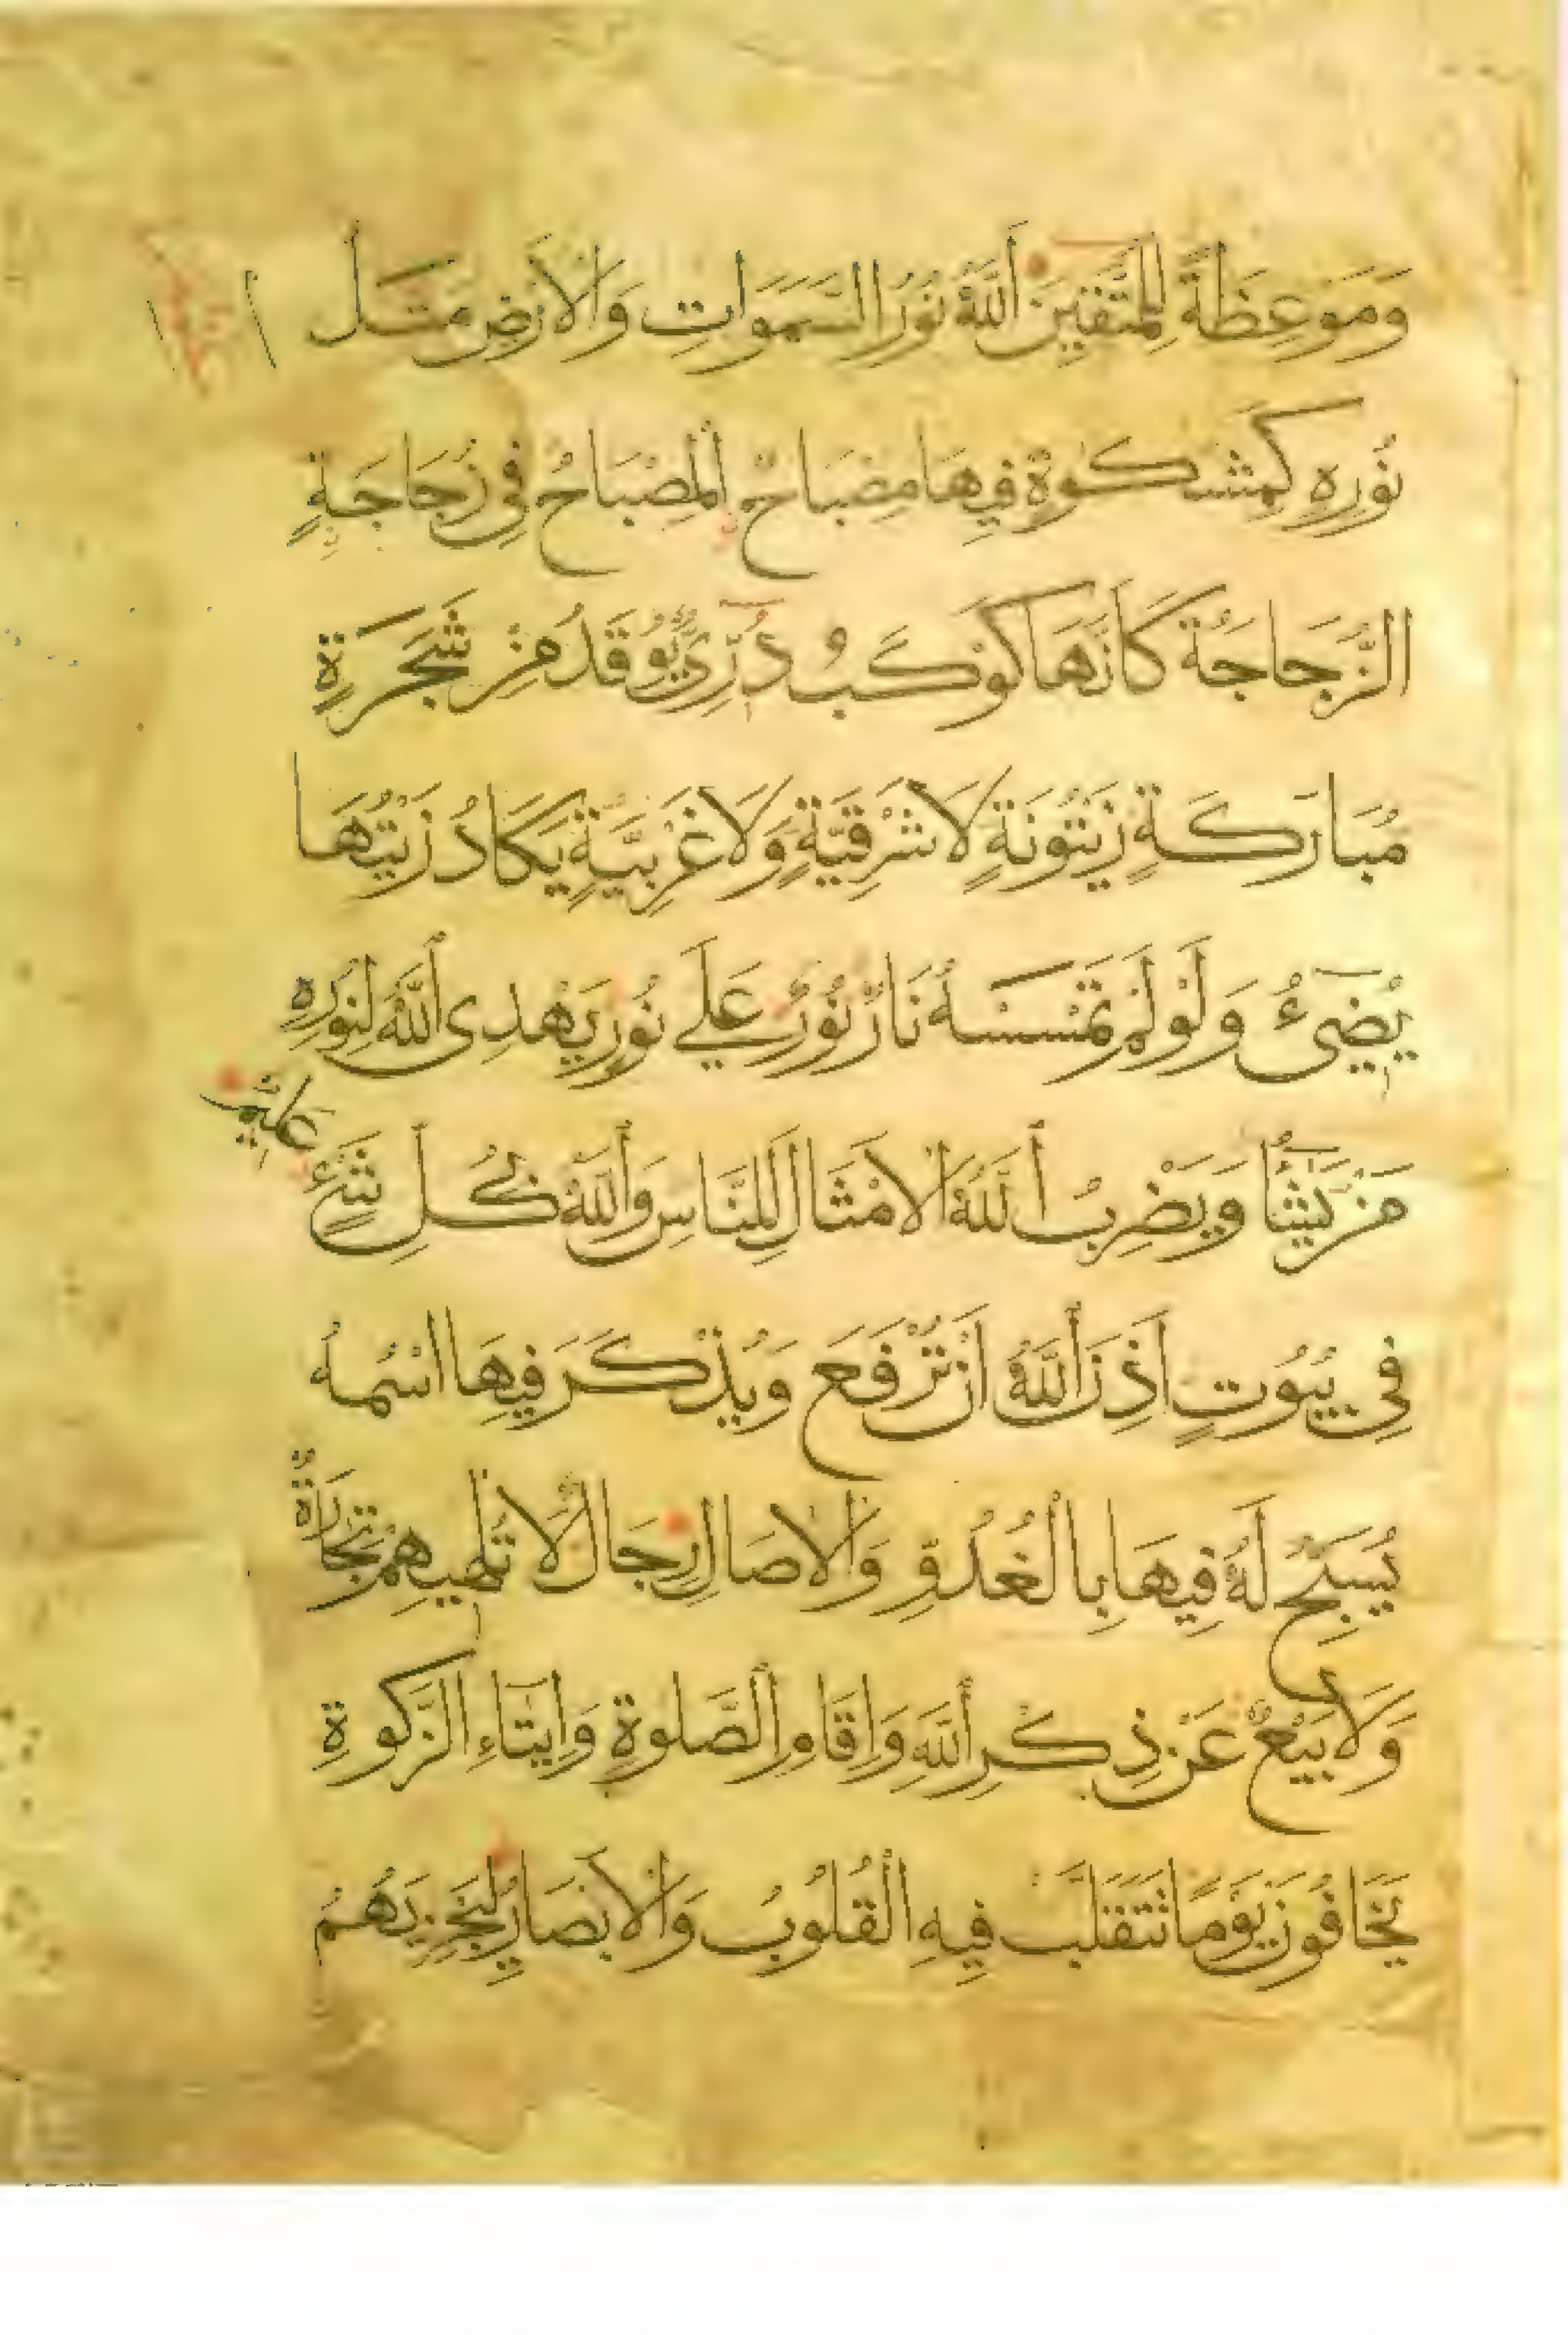 وَمَوْعِظَةً لِلْمُتَّقِينَ اَللّٰهُ نُورُ السَّمَوَاتِ وَالْاَرْضِ مَثَلُ
نُورِهِ كَمِشْكَوةٍ فِيهَا مِصْبَاحٌ اَلْمِصْبَاحُ فِي زُجَاجَةٍ
الزُّجَاجَةُ كَاَنَّهَا كَوْكَبٌ دُرِّيٌّ يُوقَدُ مِنْ شَجَرَةٍ
مُبَارَكَةٍ زَيْتُونَةٍ لَا شَرْقِيَّةٍ وَلَا غَرْبِيَّةٍ يَكَادُ زَيْتُهَا
يُضِيءُ وَلَوْ لَمْ تَمْسَسْهُ نَارٌ نُورٌ عَلَى نُورٍ يَهْدِى اَللّٰهُ لِنُورِهِ
مَنْ يَشَاءُ وَيَضْرِبُ اَللّٰهُ الْاَمْثَالَ لِلنَّاسِ وَاَللّٰهُ بِكُلِّ شَيْءٍ عَلِيمٌ
فِي بُيُوتٍ اَذِنَ اَللّٰهُ اَنْ تُرْفَعَ وَيُذْكَرَ فِيهَا اسْمُهُ
يُسَبِّحُ لَهُ فِيهَا بِالْغُدُوِّ وَالْاصَالِ رِجَالٌ لَا تُلْهِيهِمْ تِجَارَةٌ
وَلَا بَيْعٌ عَنْ ذِكْرِ اَللّٰهِ وَاِقَامِ الصَّلوةِ وَاِيتَاءِ الزَّكوةِ
يَخَافُونَ يَوْمًا تَتَقَلَّبُ فِيهِ الْقُلُوبُ وَالْاَبْصَارُ لِيَجْزِيَهُمُ